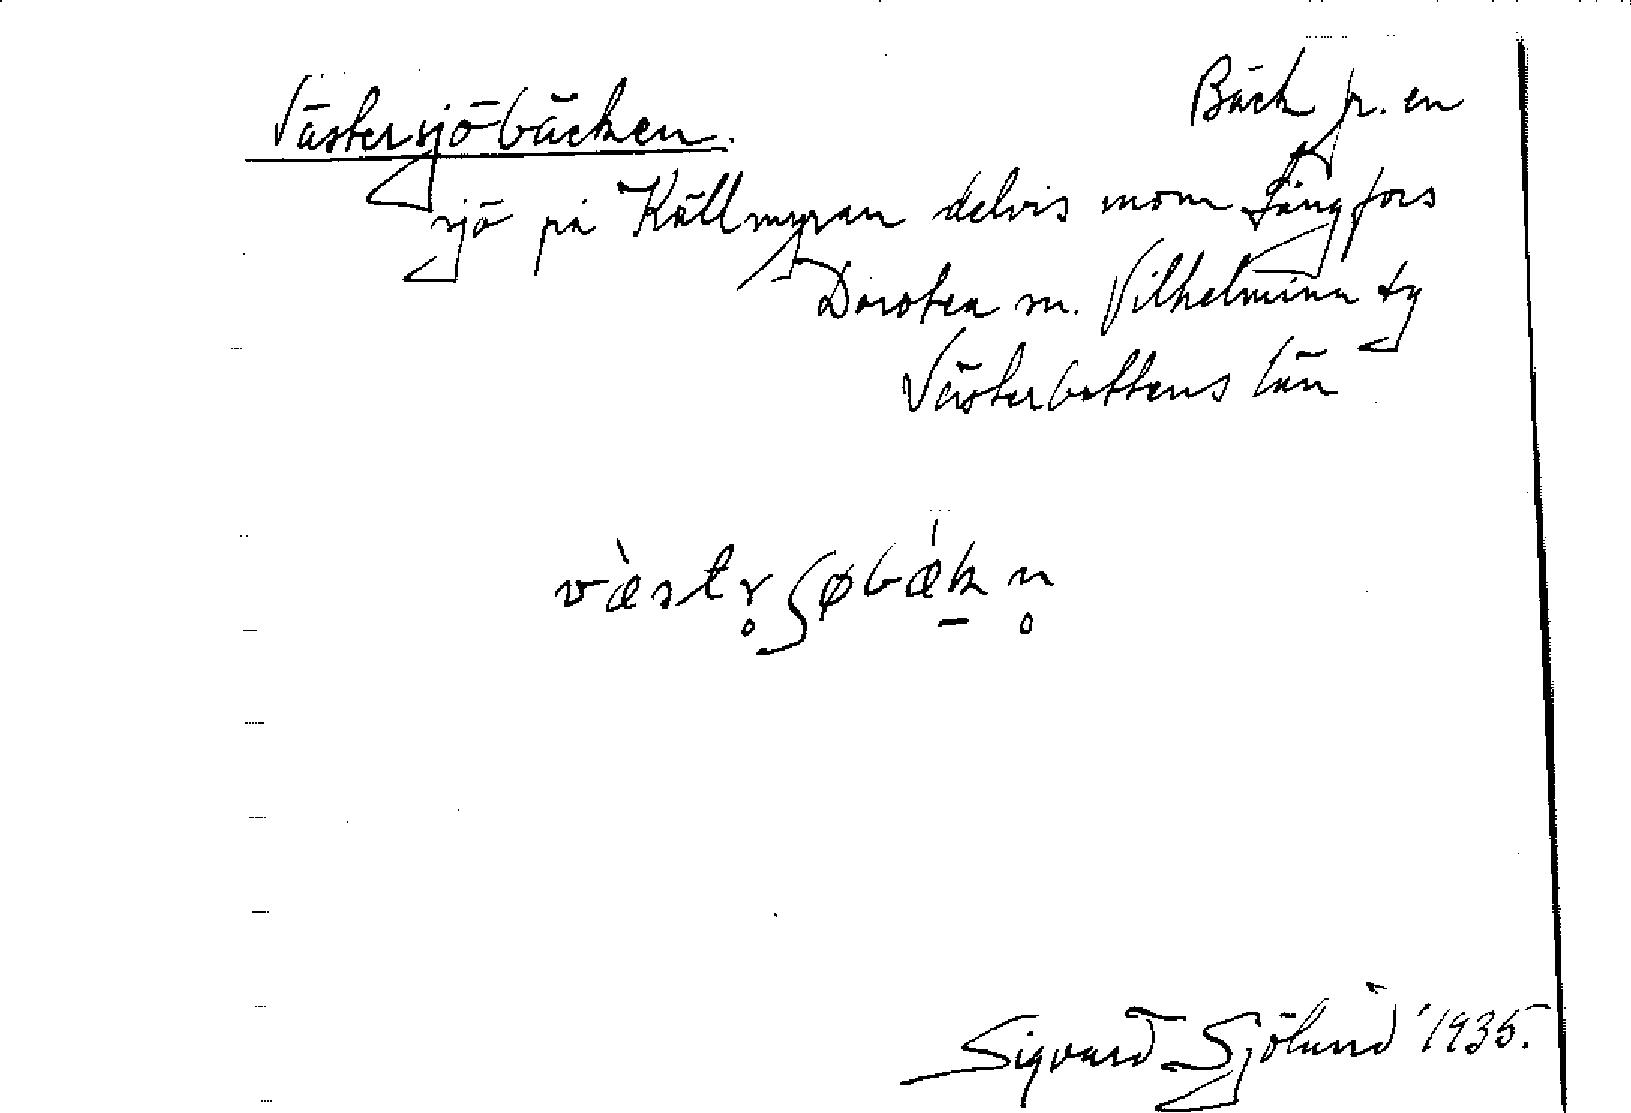 Västersjöbäcken. Bäck fr. en
sjö på Källmyran delvis inom Långfors
Dorotea m. Vilhelmina tg
Västerbottens län
væ̀str̥ʃøbǽk̲n̥
Sigvard Sjölund 1935.